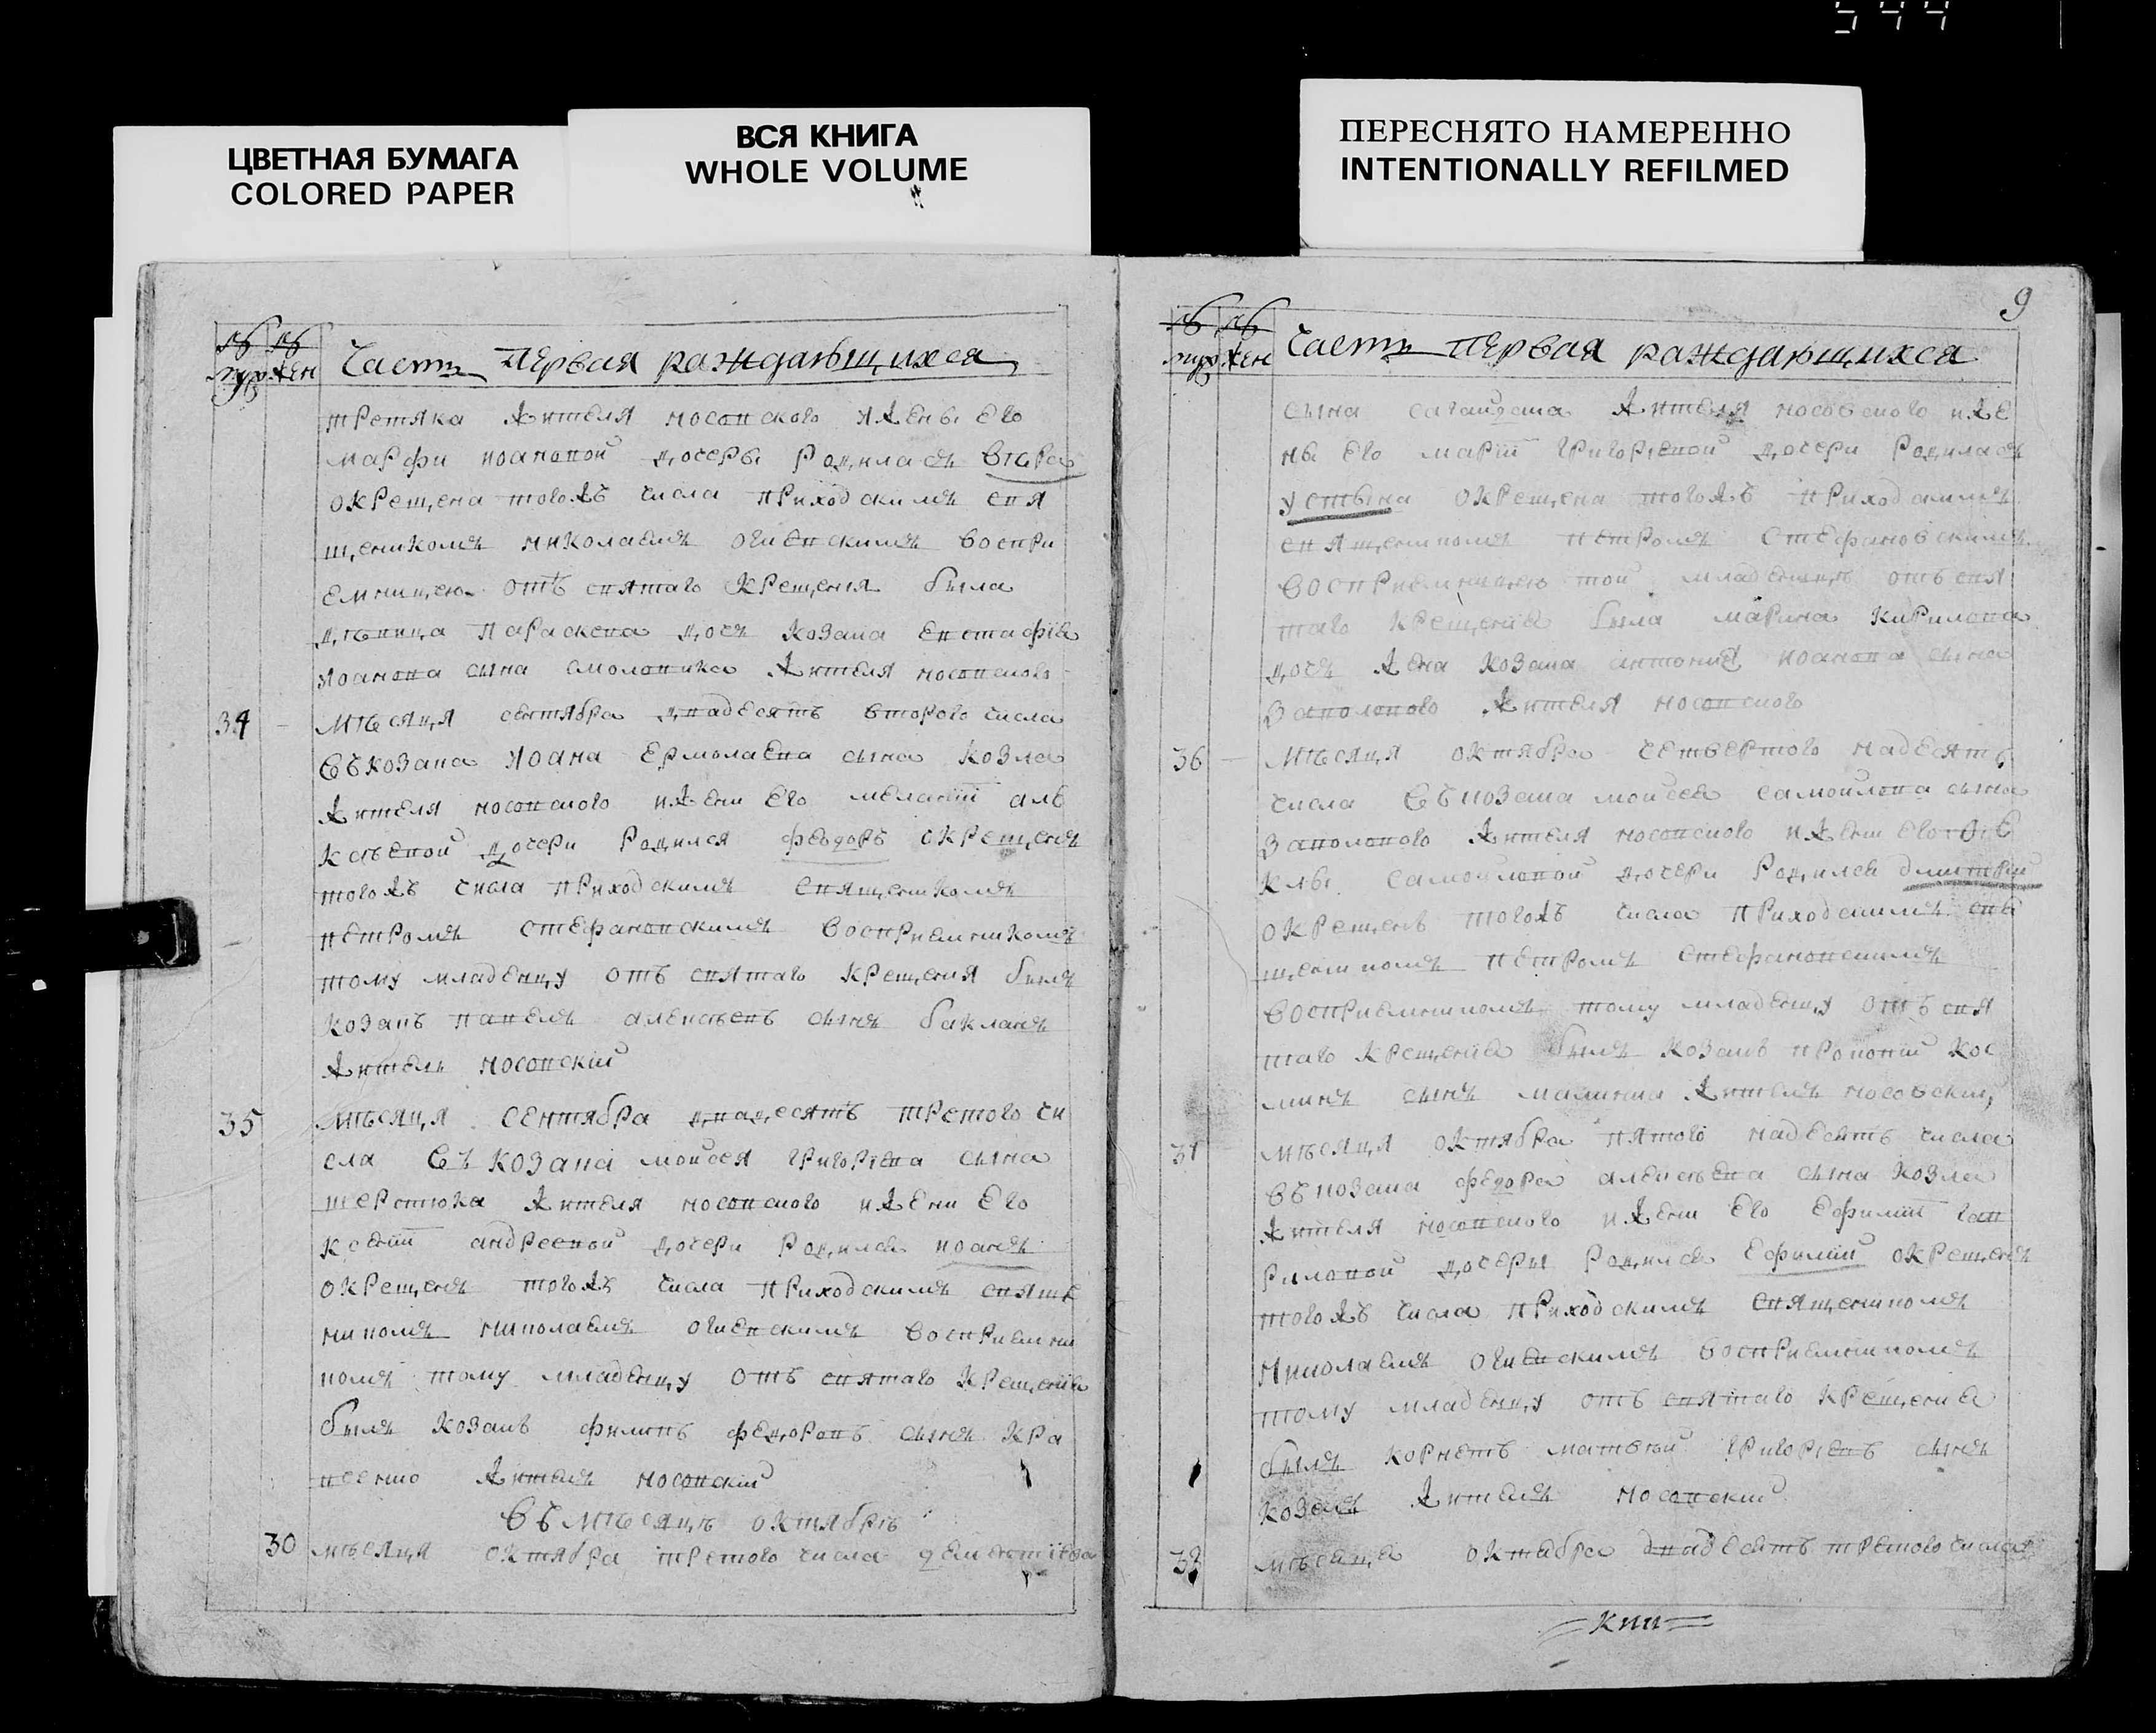 544
ЦВЕТНАЯ БУМАГА
COLORED PAPER
ВСЯ КНИГА
WHOLE VOLUME
ПЕРЕСНЯТО НАМЕРЕННО
INTENTIONALLY REFILMED
муж жен Часть Первая раждающихся
третяка жителя носовского и жены Его
марфи иоановой дочеры родилась
окрещена тогожъ числа приходскимъ свя
щеникомъ николаемъ огиевскимъ воспри
емницею отъ святаго крещения была
девица параскева дочь козака евстафiя
иоанова сына смоловика жителя носовского
34 месяця сентября двадесять второго числа
въ козака иоана ермолаева сына козла
жителя носовского и жени Его меланiи але
ксеевой дочери родился феодоръ окрещенъ
тогожъ числа приходскимъ священикомъ
петромъ стефановскимъ восприемникомъ
тому младенцу отъ святаго крещения былъ
козакъ павелъ алексеевъ сынъ бакланъ
житель носовскiй
35 месяця сентября двадесять третого чи
сла въ козака моисея григорiева сына
шерстюка жителя носовского и жени Его
ксенiи андреевой дочери родился иоанъ
окрещенъ тогожъ числа приходскимъ свяще
никомъ николаемъ огиевскимъ восприемни
комъ тому младенцу отъ святаго крещенiя
былъ козакъ филипъ федоровъ сынъ кра
житель носовскiй
въ месяце октябре
30 месяця октября третого числа
9
муж жен Часть Первая раждающихся
сына жителя носовского и же
ны Его марiи григорiевой дочери родилась
устына окрещена тогожъ приходскимъ
священикомъ петромъ стефановскимъ
восприемницею той младенице отъ свя
таго крещенiя была марина кирилова
дочь жена козака антония иоанова сына
заполового жителя носовского
36 месяця октября четвертого надесять
числа въ козака моисея самойлова сына
заполового жителя носовского и жени его Фе
клы самойловой дочери родился дмитрiй
окрещенъ тогожъ числа приходскимъ свя
щеникомъ петромъ стефановскимъ
восприемникомъ тому младенцу отъ свя
таго крещенiя былъ козакъ прокопiй кос
минъ сынъ малинка житель носовскiй
37 месяця октября пятого надесять числа
въ козака федора алексеева сына козла
жителя носовского и жени Его Ефимiи гав
риловой дочеры родился Ефимiй окрещенъ
тогожъ числа приходскимъ священикомъ
николаемъ огиевскимъ восприемникомъ
тому младенцу отъ святаго крещения
былъ корнетъ матвей григорiевъ сынъ
житель носовскiй
38 месяця октября двадесять третого числа